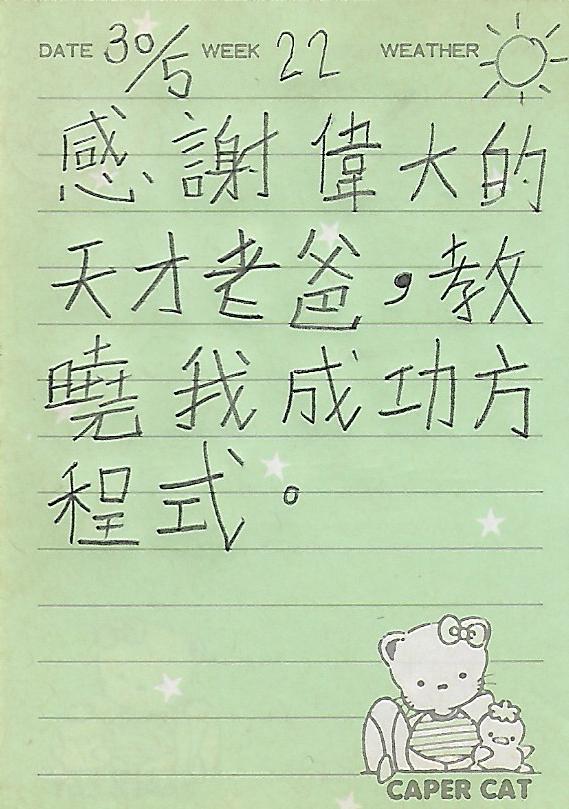 DATE 30/5 WEEK 22 WEATHER
感謝偉大的
天才老爸，教
曉我成功方
程式。
CAPER CAT